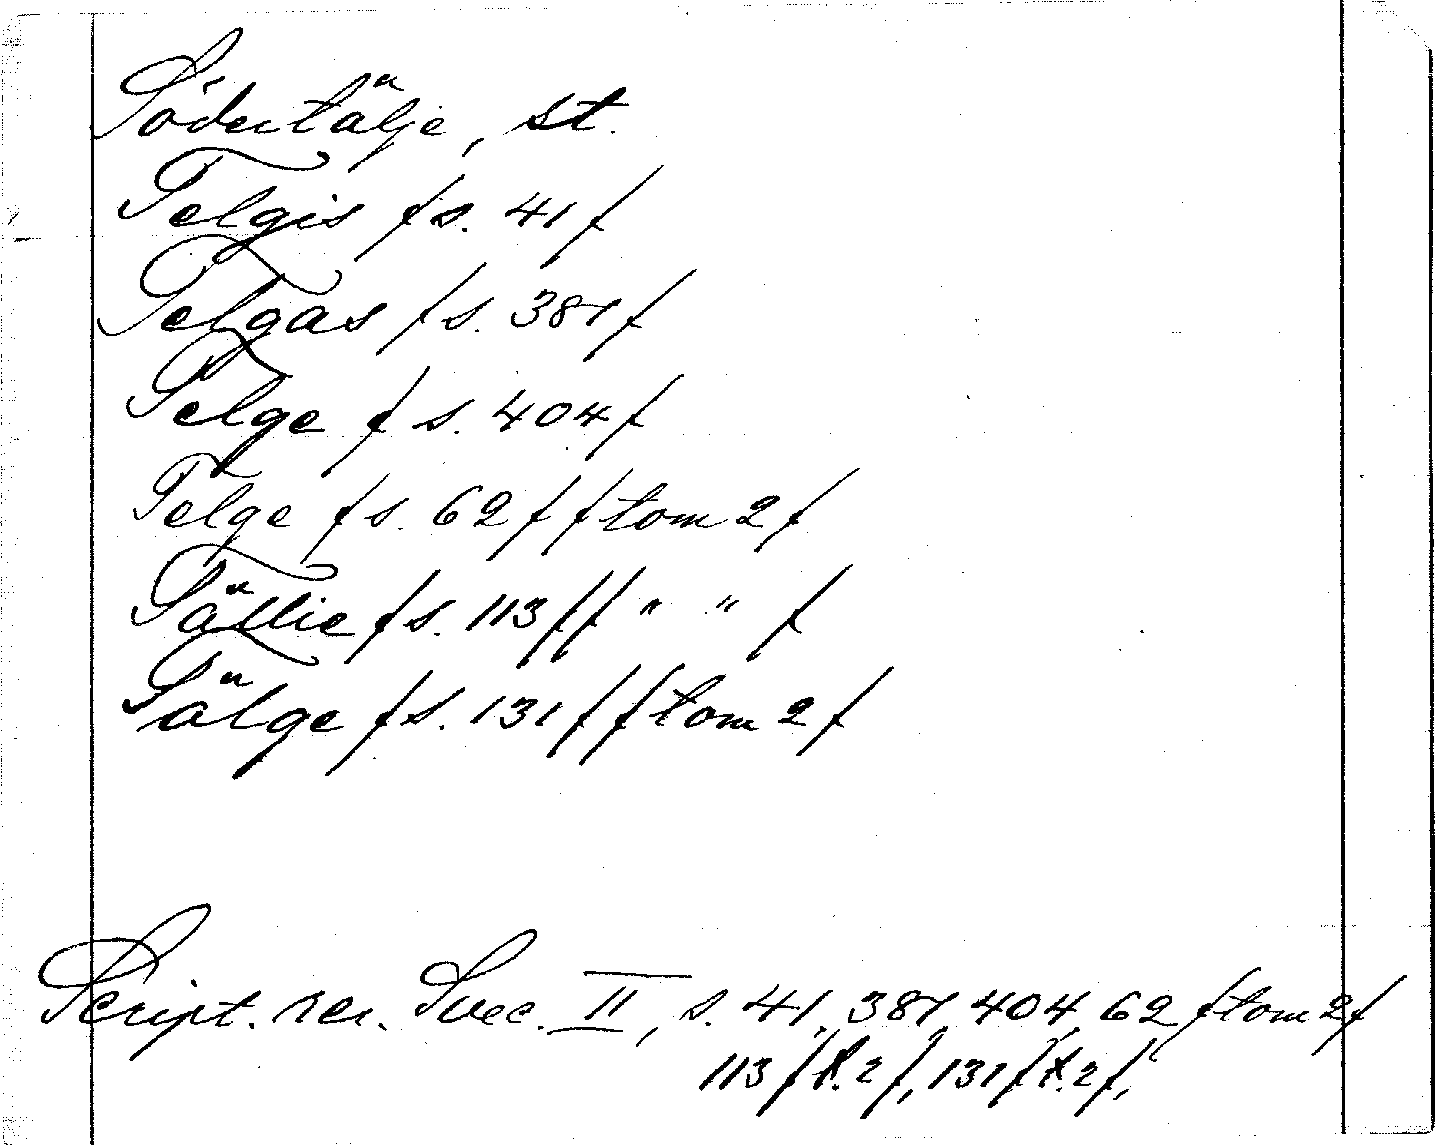 Södertälje, st.
Telgis /s. 41/
Telgas /s. 381/
Telge /s. 404/
Telge /s. 62/ /tom 2/
Tällie /s. 113/ / " " /
Tälge /s. 131/ /tom 2/
Script. rer. Svec. II, s. 41, 381, 404, 62 /tom 2/
113 /t. 2/, 131 /t. 2/,